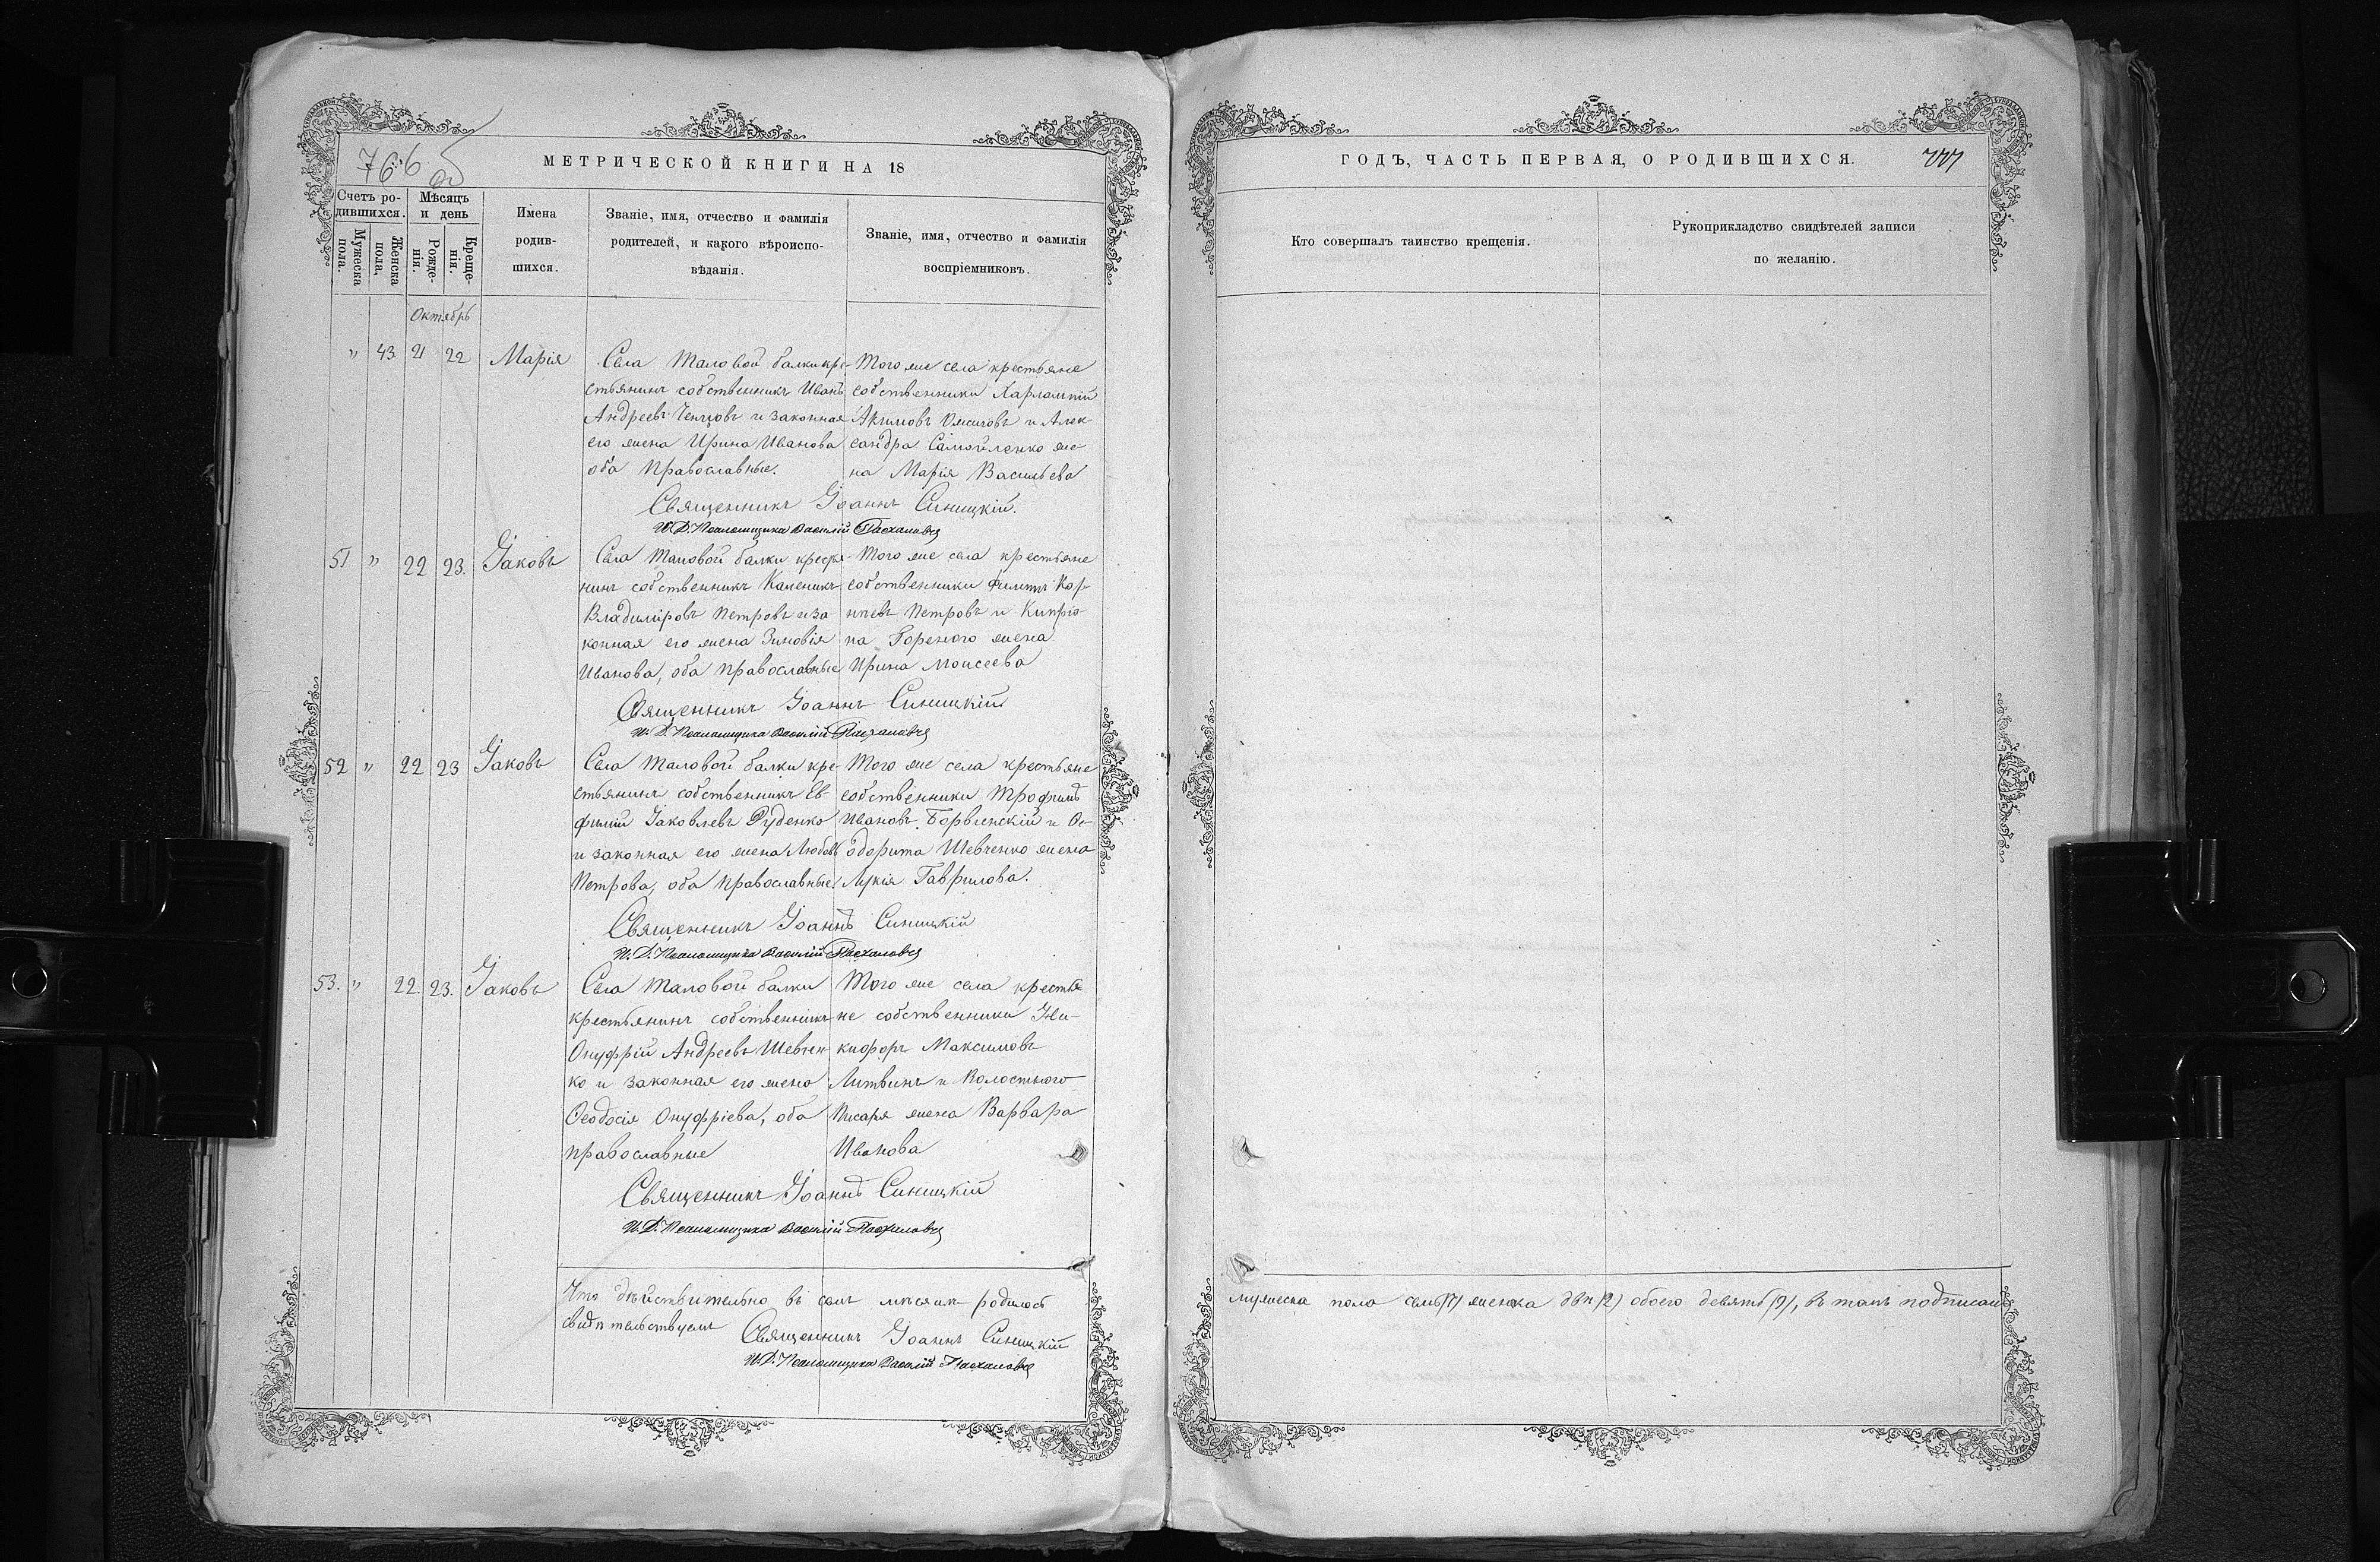 766 об
МЕТРИЧЕСКОЙ КНИГИ НА 18
Счетъ ро-
дившихся.
Мужеска
пола.
Женска
пола,
Мѣсяцъ
и день
Рожде-
нія.
Креще-
нія.
Имена
родив-
шихся.
Званіе, имя, отчество и фамилія
родителей, и какого вѣроиспо-
вѣданія.
Званіе, имя, отчество и фамилія
воспріемниковъ.
Октябрь
" 43 21 22 Марія
Села Таловой балки кре-
стьянинъ собственникъ Иванъ
Андреевъ Ченцовъ и законная
его жена Ирина Иванова
оба православные.
Того же села крестьяне
собственники Харлампій
Акимовъ и Алек-
сандра Самойленко же
на Марія Васильева
Священникъ Іоаннъ Синицкій.
И. Д. Псаломщика Василій
51 " 22 23. Іаковъ
Села Таловой балки крестья
нинъ собственникъ Каленикъ
Владиміровъ Петровъ и за
конная его жена Зиновія
Иванова, оба православные
Того же села крестьяне
собственники Филиппъ Кор-
нѣевъ Петровъ и Кипріа-
на Гореного жена
Ирина Моисеева
Священникъ Іоаннъ Синицкій
И. Д. Псаломщика Василій
52 " 22 23 Іаковъ
Села Таловой балки кре-
стьянинъ собственникъ Ев-
фимій Іаковлевъ Руденко
и законная его жена Любовь
Петрова, оба православные.
Того же села крестьяне
собственники Трофимъ
Ивановъ и Ѳе-
одорита Шевченко жена
Лукія Гаврилова.
Священникъ Іоаннъ Синицкій
И. Д. Псаломщика Василій
53. " 22. 23. Іаковъ
Села Таловой балки
крестьянинъ собственникъ
Онуфрій Андреевъ Шевчен-
ко и законная его жена
Ѳеодосія Онуфріева, оба
православные
Того же села крестья
не собственники Ни-
кифоръ Максимовъ
Литвинъ и Волостного
Писаря жена Варвара
Иванова
Священникъ Іоаннъ Синицкій
И. Д. Псаломщика Василій
Что дѣйствительно въ семъ мѣсяцѣ родилось
свидѣтельствуемъ
Священникъ Іоаннъ Синицкій
И. Д. Псаломщика Василій
ГОДЪ, ЧАСТЬ ПЕРВАЯ, О РОДИВШИХСЯ.
777
Кто совершалъ таинство крещенія.
Рукоприкладство свидѣтелей записи
по желанію.
мужеска пола семь (7) женска двѣ (2) обоего девять (9), въ томъ подписомъ